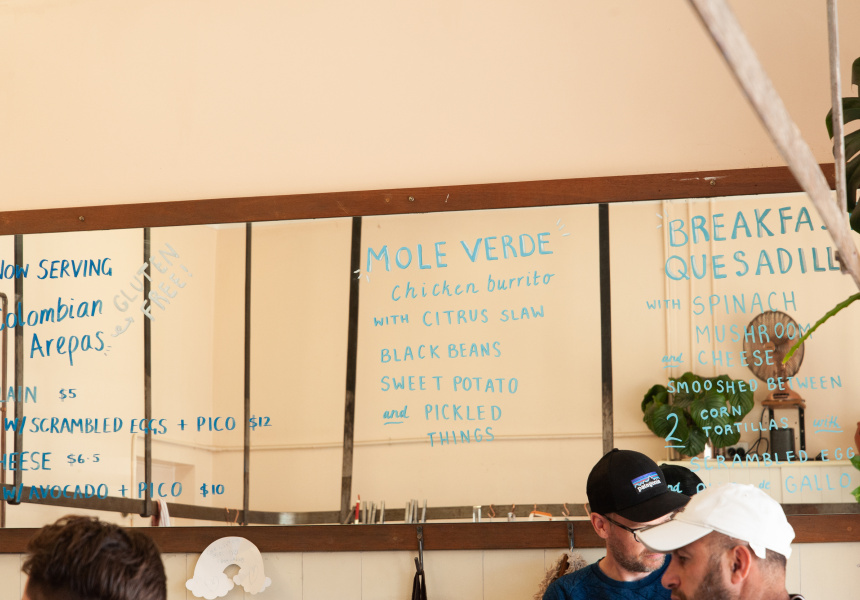 NOW SERVING
Colombian
Arepas
GLUTEN
FREE!
LAIN $5
W/ SCRAMBLED EGGS + PICO $12
HEESE $6.5
W/ AVOCADO + PICO $10
MOLE VERDE
Chicken burrito
WITH CITRUS SLAW
BLACK BEANS
SWEET POTATO
and PICKLED
THINGS
BREAKFAS
QUESADILL
WITH SPINACH
MUSHROOM
and CHEESE
SMOOSHED BETWEEN
2 CORN
TORTILLAS with
SCRAMBLED EGG
de GALLO
patagonia